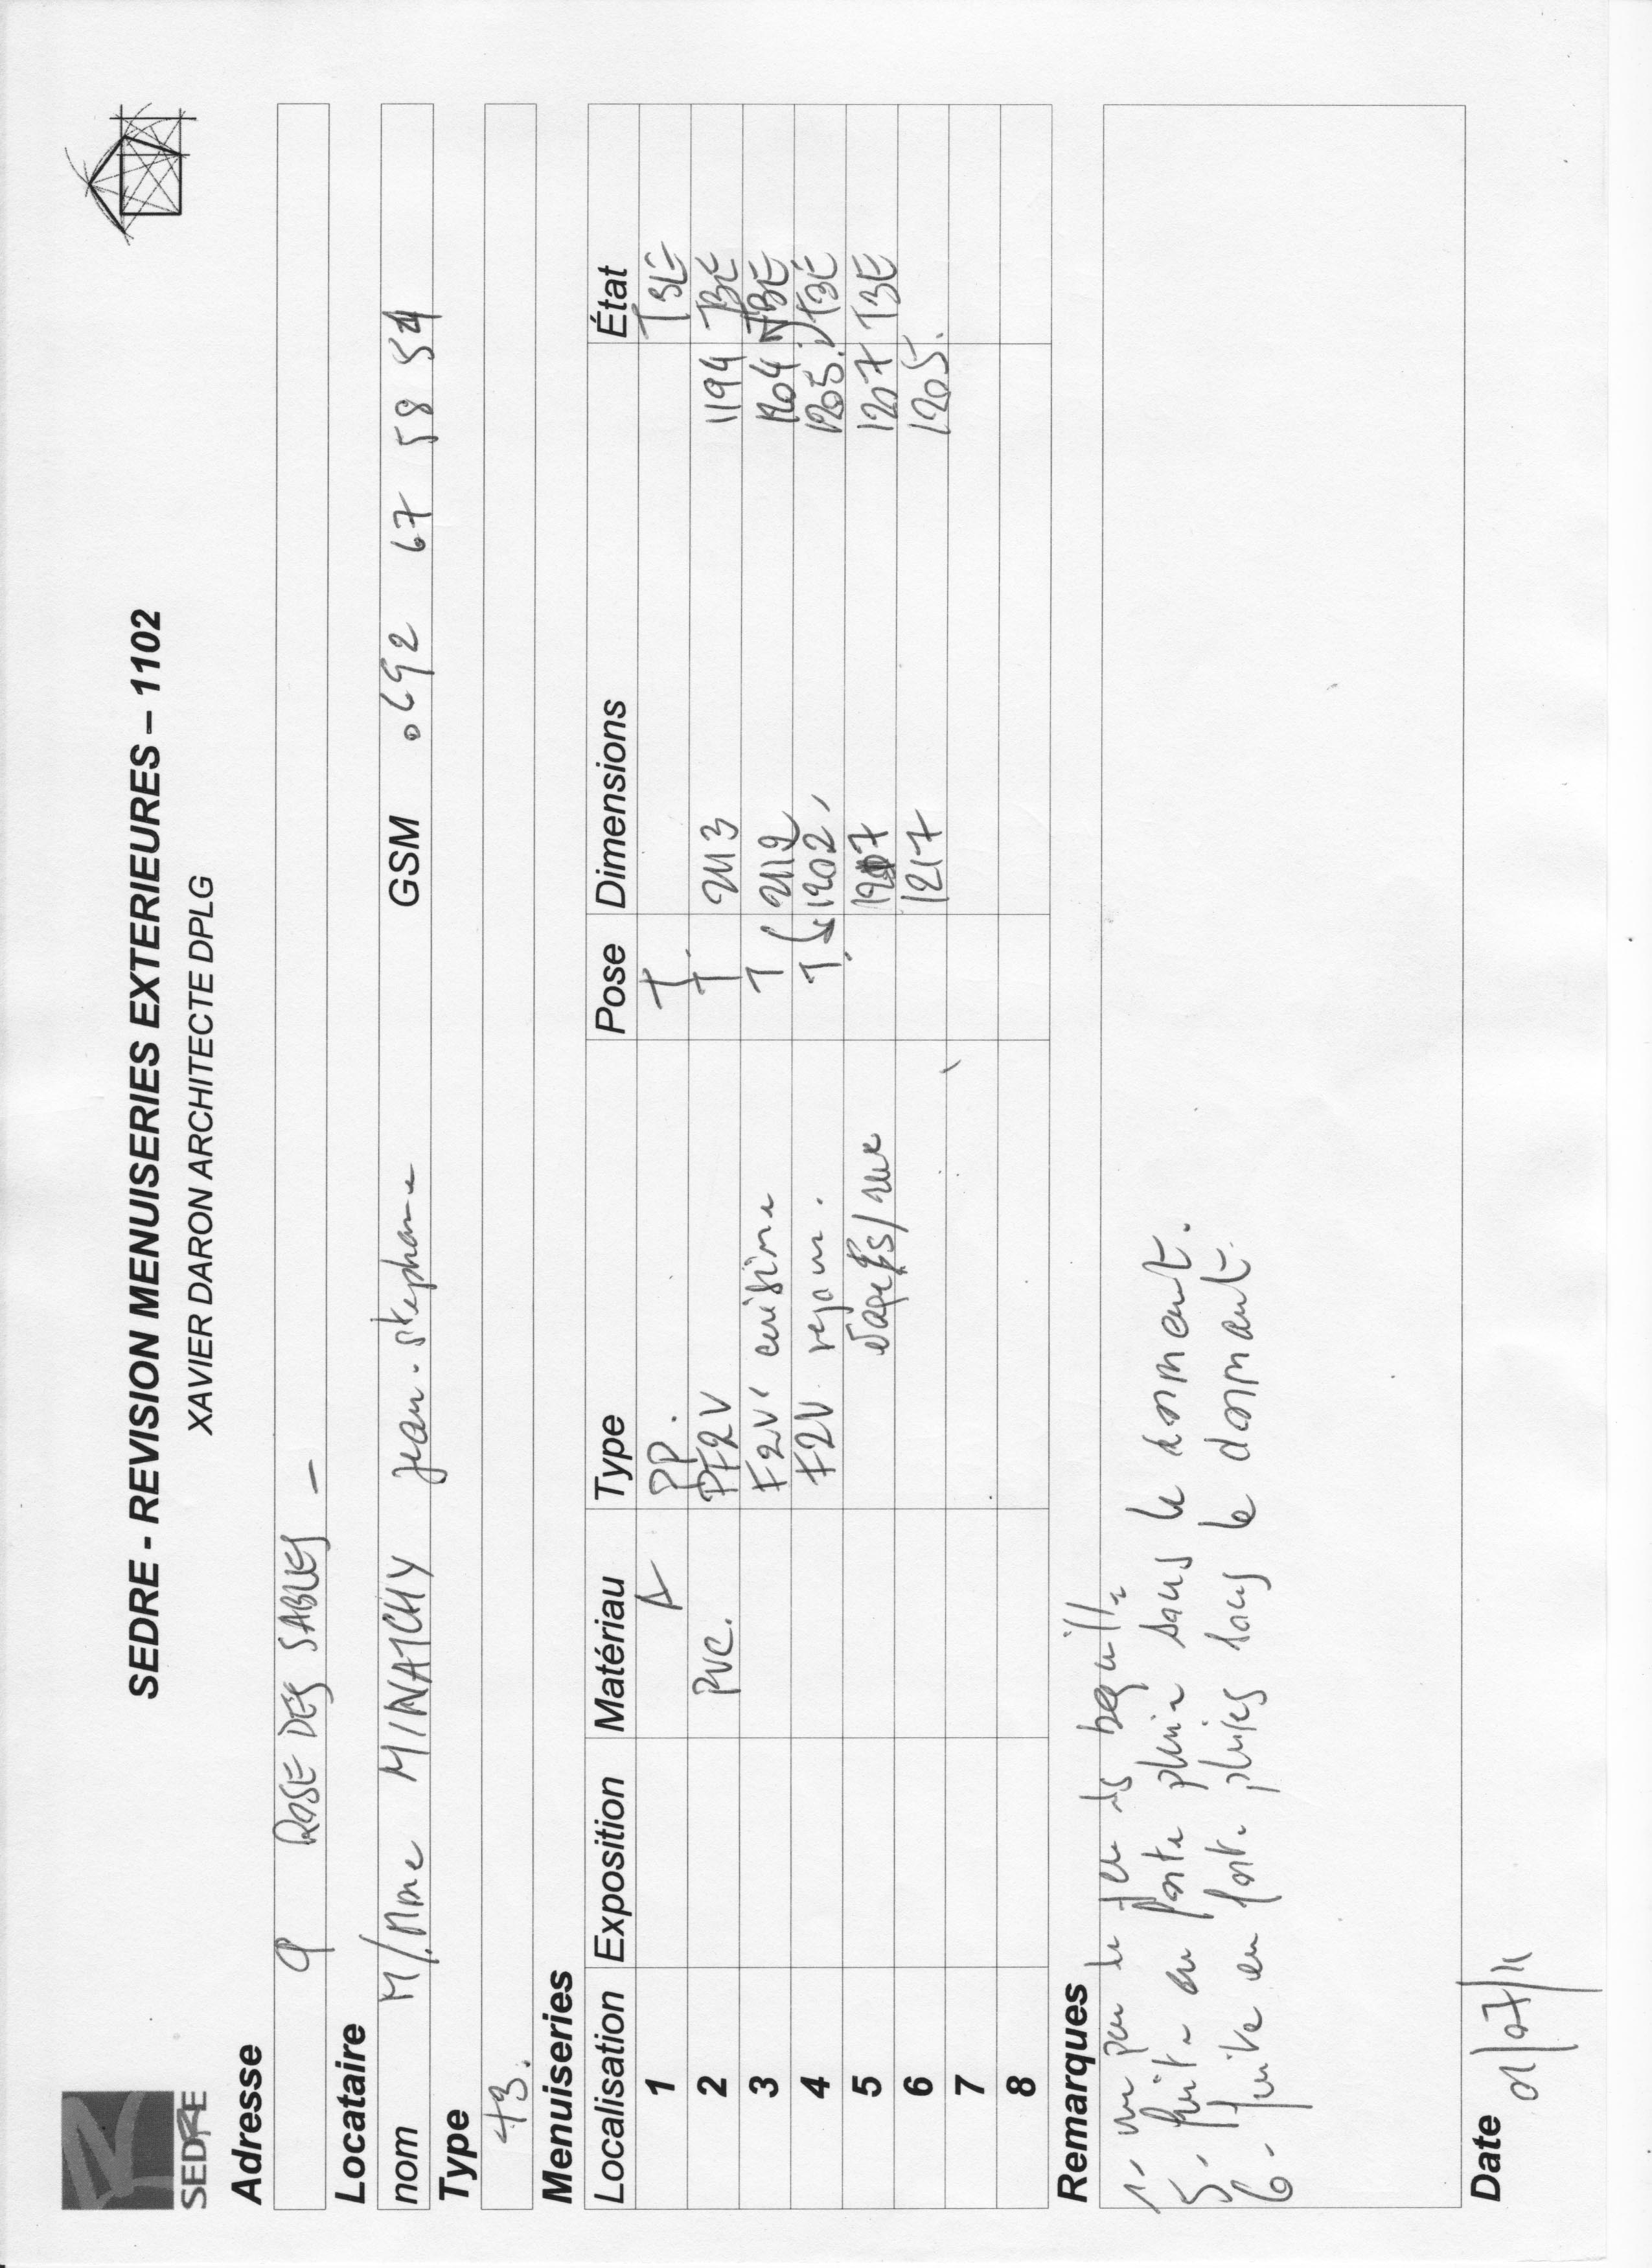 SEDRE
SEDRE - REVISION MENUISERIES EXTERIEURES – 1102
XAVIER DARON ARCHITECTE DPLG
Adresse
9 ROSE DES SABLES –
Locataire
nom M/Mme MINATCHY Jean-Stephane GSM 0692 67 58 54
Type
T3.
Menuiseries
Localisation Exposition Matériau Type Pose Dimensions État
1 A PP. T TBE
2 PVC. PF2V T. 2113 1194 TBE
3 F2V cuisine T 2112 1204 TBE
4 F2V T. 1202 1205. TBE
5 1207 1207 TBE
6 1217 1205.
7
8
Remarques
1- un peu de jeu ds bequille
5- fuite en forte pluie sous le dormant.
6- fuite en forte pluies sous le dormant.
Date
01/07/11